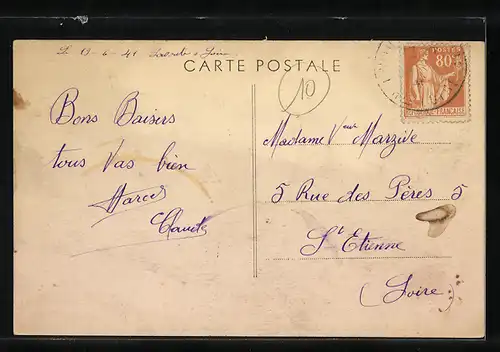 Le 13-6-41
CARTE POSTALE
POSTES
80c
10
Bons Baisers
tous vas bien
Marcel
Claude
Madame Vve
5 Rue des Pères 5
St Etienne
(Loire)